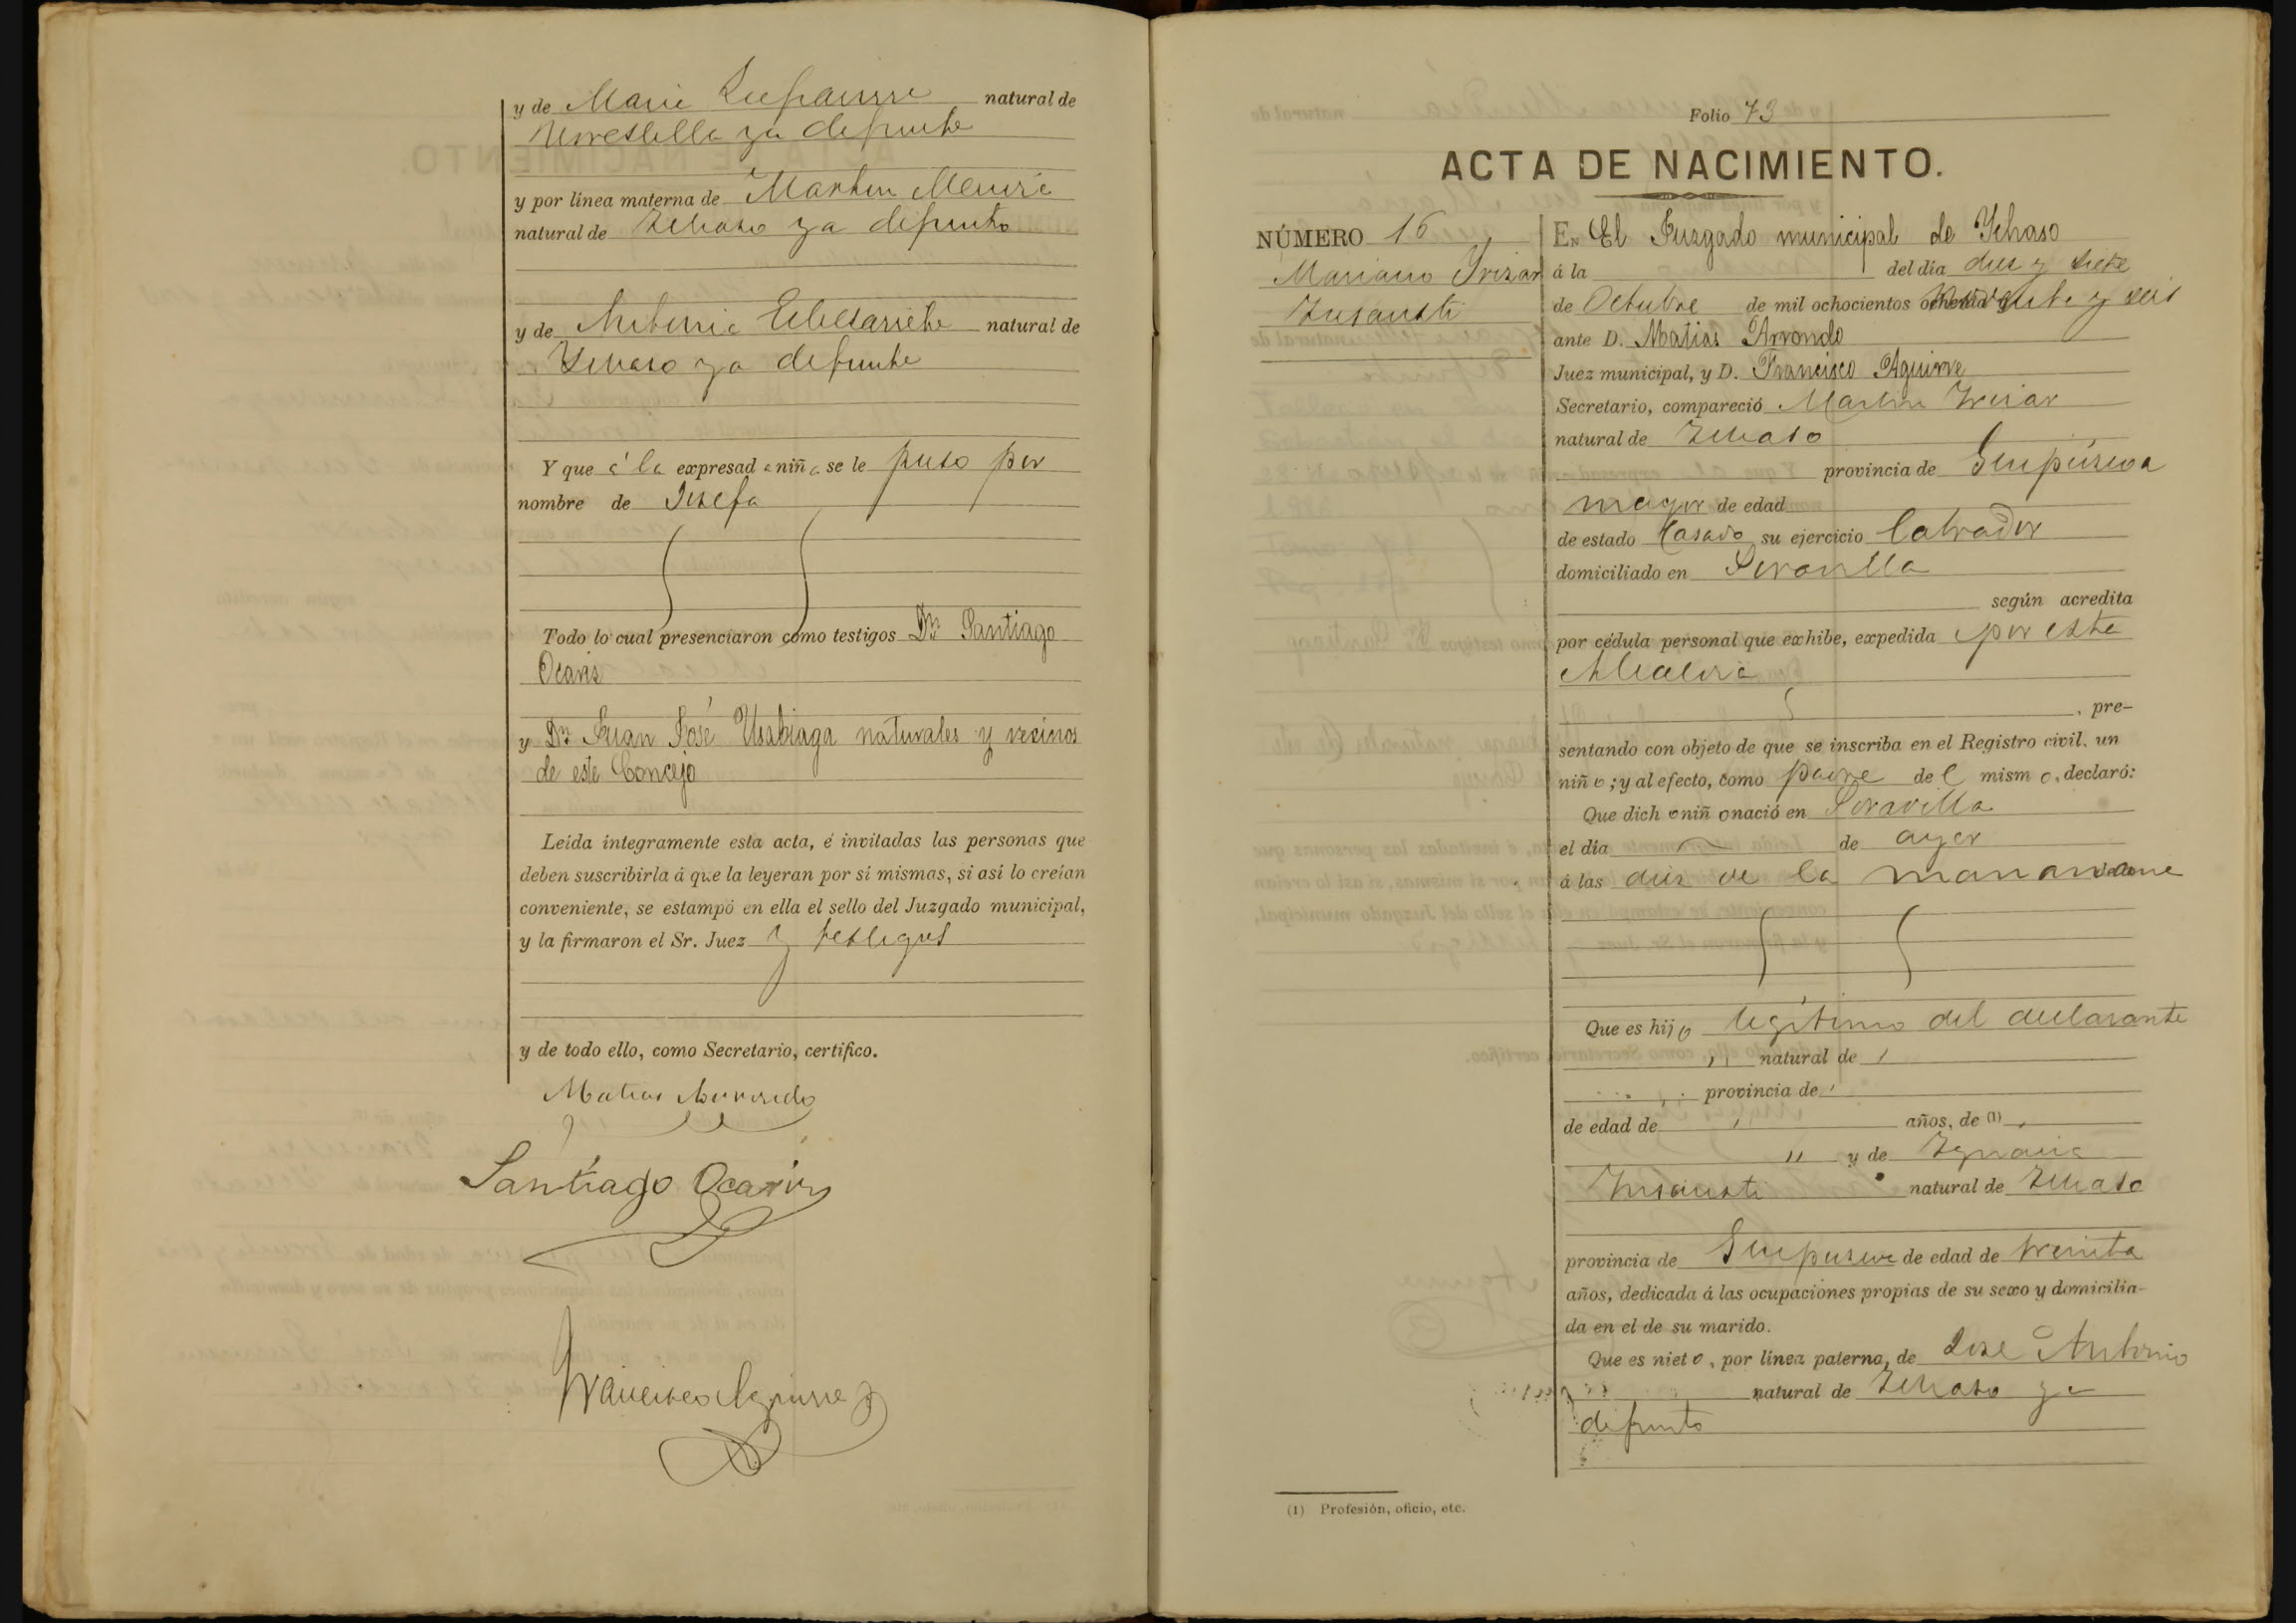 y de Maria natural de
ya defunta
y por línea materna de Martin
natural de Ichaso ya defunto
y de Antonia natural de
Ichaso ya defunta
Y que á la expresad a niñ a se le puso por
nombre de Josefa
Todo lo cual presenciaron como testigos Dn Santiago
Ocariz
y Dn Juan José Usabiaga naturales y vecinos
de este Concejo
Leída íntegramente esta acta, é invitadas las personas que
deben suscribirla á que la leyeran por sí mismas, si así lo creían
conveniente, se estampó en ella el sello del Juzgado municipal,
y la firmaron el Sr. Juez y testigos
y de todo ello, como Secretario, certifico.
Matias Arrondo
Santiago Ocariz
Francisco Aguirre
Folio 73
ACTA DE NACIMIENTO.
NÚMERO 16
Mariano Irizar
Insausti
En El Juzgado municipal de Ichaso
á la del día diez y siete
de Octubre de mil ochocientos ochenta y noventa y seis
ante D. Matias Arrondo
Juez municipal, y D. Francisco Aguirre
Secretario, compareció Martin Irizar
natural de Ichaso
provincia de Guipúzcoa
mayor de edad
de estado Casado su ejercicio labrador
domiciliado en
según acredita
por cédula personal que exhibe, expedida por esta
Alcaldia
, pre-
sentando con objeto de que se inscriba en el Registro civil, un
niñ o; y al efecto, como padre de l mism o, declaró:
Que dich o niñ o nació en
el día de ayer
á las diez de la manana
Que es hijo legítimo del declarante
natural de
provincia de
de edad de años, de (1)
y de Ignacia
Insausti natural de Ichaso
provincia de Guipuzcoa de edad de treinta
años, dedicada á las ocupaciones propias de su sexo y domicilia-
da en el de su marido.
Que es niet o, por línea paterna, de José Antonio
natural de Ichaso ya
defunto
(1) Profesión, oficio, etc.